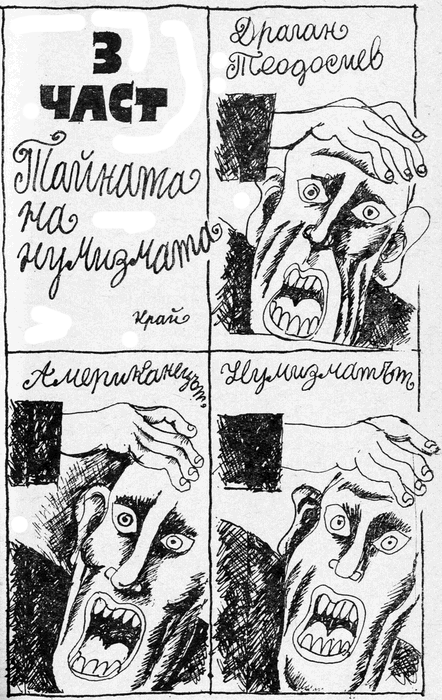 3
ЧАСТ
Тайната
на
нумизмата
Край
Драган
Теодосиев
Американецът
Нумизматът